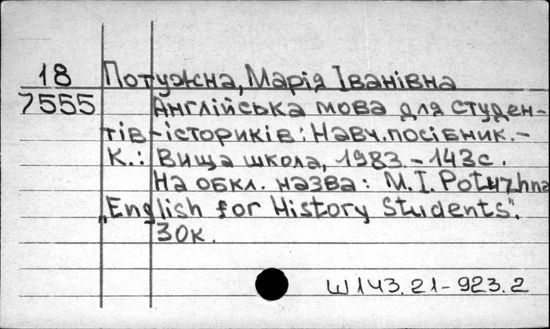 18 Потужна, Марія Іванівна
7555 Англійська мова для студен-
тів-істориків: Навч.посібник.-
К.: Вища школа, 1983.-143с.
На обкл. назва: M.I.Potuzhna
„English for History Students".
30к.
Ш143.21-923.2